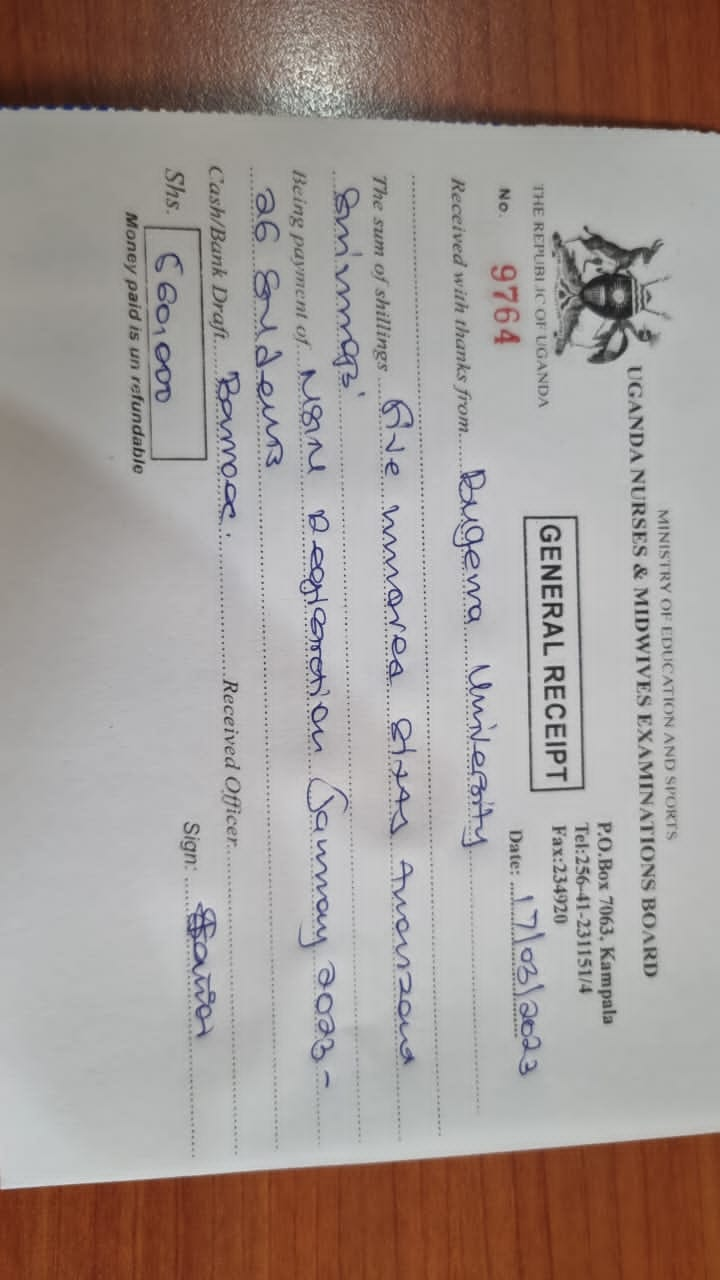 MINISTRY OF EDUCATION AND SPORTS
UGANDA NURSES & MIDWIVES EXAMINATIONS BOARD
P.O.Box 7063, Kampala
Tel:256-41-231151/4
Fax:234920
THE REPUBLIC OF UGANDA
GENERAL RECEIPT
No. 9764
Date: 17/03/2023
Received with thanks from Bugema University
The sum of shillings Five hundred sixty thousand
shillings
Being payment of NSIN Registration January 2023 -
26 students
Cash/Bank Draft Received Officer
Shs. 560,000
Sign:
Money paid is un refundable